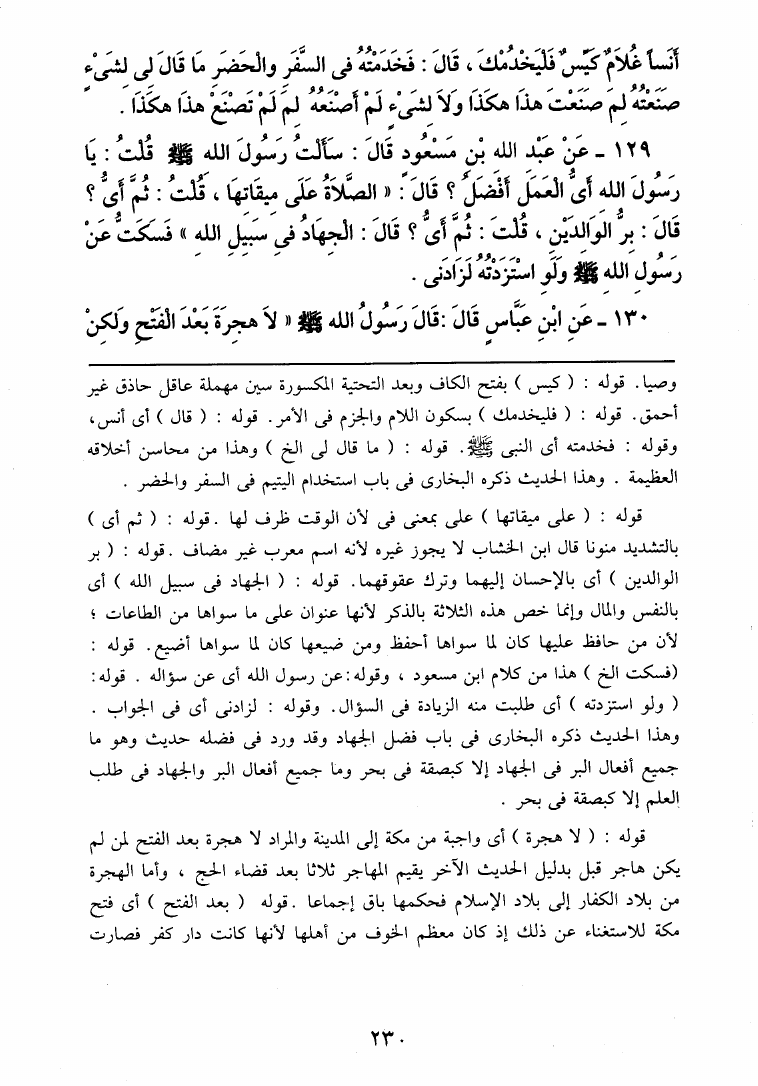 أَنَساً غُلَامٌ كَيِّسٌ فَلْيَخْدُمْكَ ، قَالَ : فَخَدَمْتُهُ فِى السَّفَرِ والْحَضَرِ مَا قَالَ لِى لِشَىْءٍ
صَنَعْتُهُ لِمَ صَنَعْتَ هذَا هكَذَا وَلَا لِشَىْءٍ لَمْ أَصْنَعْهُ لِمَ لَمْ تَصْنَعْ هذَا هكَذَا .
١٢٩ ـ عَنْ عَبْدِ الله بْنِ مَسْعُودٍ قَالَ : سَأَلْتُ رَسُولَ الله ﷺ قُلْتُ : يَا
رَسُولَ الله أَىُّ الْعَمَلِ أَفْضَلُ ؟ قَالَ : « الصَّلَاةُ عَلَى مِيقَاتِهَا ، قُلْتُ : ثُمَّ أَىُّ ؟
قَالَ : بِرُّ الْوَالِدَيْنِ ، قُلْتَ : ثُمَّ أَىُّ ؟ قَالَ : الْجِهَادُ فِى سَبِيلِ الله » فَسَكَتُّ عَنْ
رَسُولِ الله ﷺ وَلَوِ اسْتَزَدْتُهُ لَزَادَنِى .
١٣٠ ـ عَنِ ابْنِ عَبَّاسٍ قَالَ :قَالَ رَسُولُ الله ﷺ « لَا هِجِرَةَ بَعْدَ الْفَتْحِ وَلَكِنْ
وصيا. قوله : ( كيس ) بفتح الكاف وبعد التحتية المكسورة سين مهملة عاقل حاذق غير
أحمق. قوله : ( فليخدمك ) بسكون اللام والجزم فى الأمر. قوله : ( قال ) أى أنس،
وقوله : فخدمته أى النبى ﷺ. قوله : ( ما قال لى الخ ) وهذا من محاسن أخلاقه
العظيمة . وهذا الحديث ذكره البخارى فى باب استخدام اليتيم فى السفر والحضر .
قوله : ( على ميقاتها ) على بمعنى فى لأن الوقت ظرف لها .قوله : ( ثم أى )
بالتشديد منونا قال ابن الخشاب لا يجوز غيره لأنه اسم معرب غير مضاف .قوله : ( بر
الوالدين ) أى بالإحسان إليهما وترك عقوقهما. قوله : ( الجهاد فى سبيل الله ) أى
بالنفس والمال وإنما خص هذه الثلاثة بالذكر لأنها عنوان على ما سواها من الطاعات ؛
لأن من حافظ عليها كان لما سواها أحفظ ومن ضيعها كان لما سواها أضيع. قوله :
(فسكت الخ ) هذا من كلام ابن مسعود ، وقوله:عن رسول الله أى عن سؤاله . قوله:
( ولو استزدته ) أى طلبت منه الزيادة فى السؤال. وقوله : لزادنى أى فى الجواب .
وهذا الحديث ذكره البخارى فى باب فضل الجهاد وقد ورد فى فضله حديث وهو ما
جميع أفعال البر فى الجهاد إلا كبصقة فى بحر وما جميع أفعال البر والجهاد فى طلب
العلم إلا كبصقة فى بحر .
قوله : ( لا هجرة ) أى واجبة من مكة إلى المدينة والمراد لا هجرة بعد الفتح لمن لم
يكن هاجر قبل بدليل الحديث الآخر يقيم المهاجر ثلاثا بعد قضاء الحج ، وأما الهجرة
من بلاد الكفار إلى بلاد الإسلام فحكمها باق إجماعا .قوله ( بعد الفتح ) أى فتح
مكة للاستغناء عن ذلك إذ كان معظم الخوف من أهلها لأنها كانت دار كفر فصارت
٢٣٠